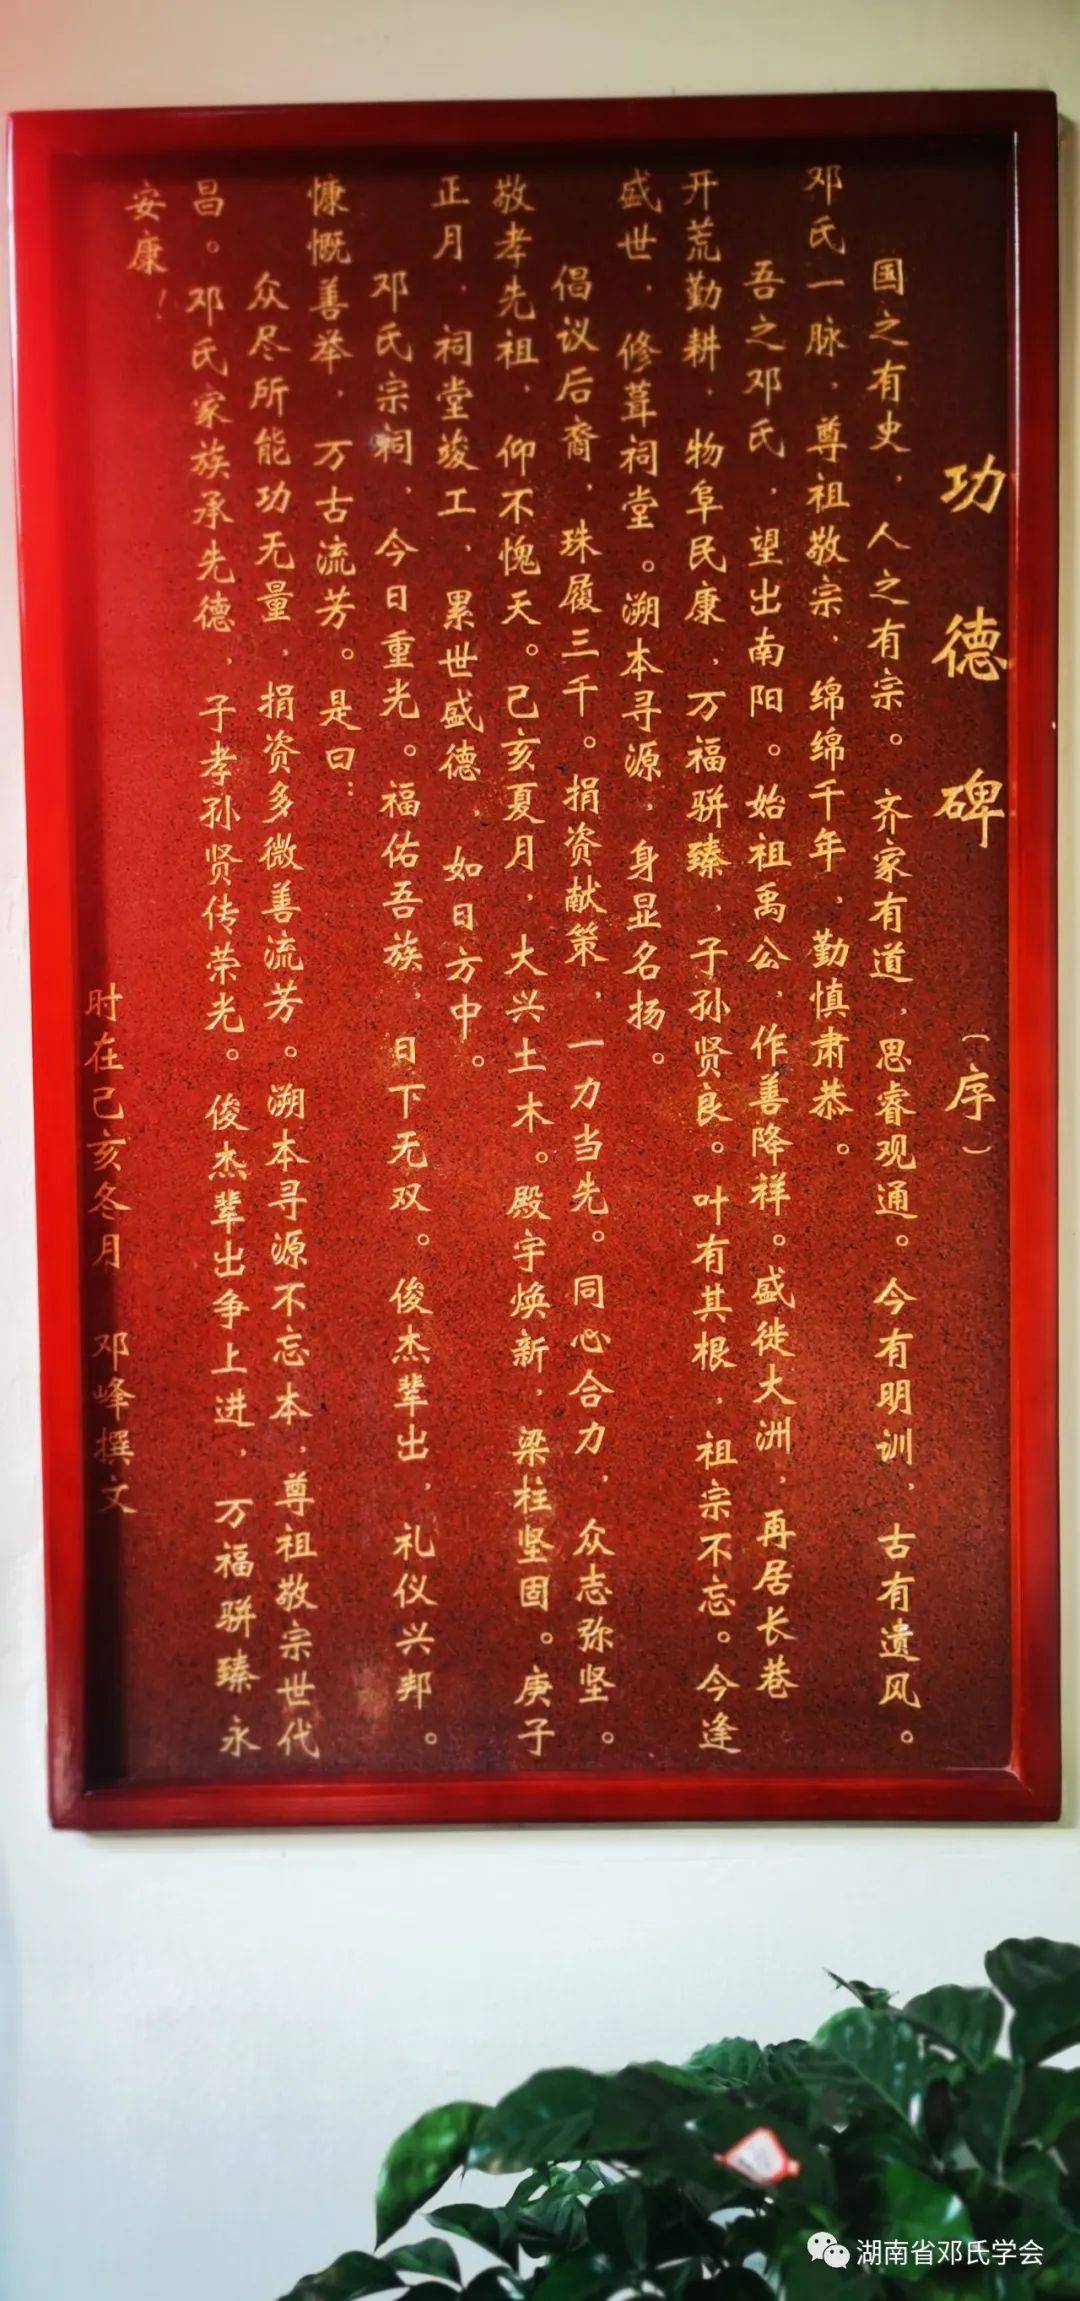 功德碑（序）
国之有史，人之有宗。齐家有道，思睿观通。今有明训，古有遗风。
邓氏一脉，尊祖敬宗，绵绵千年，勤慎肃恭。
吾之邓氏，望出南阳。始祖禹公，作善降祥。盛徙大洲，再居长巷
开荒勤耕，物阜民康，万福骈臻，子孙贤良。叶有其根，祖宗不忘。今逢
盛世，修葺祠堂。溯本寻源，身显名扬。
倡议后裔，珠履三千。捐资献策，一力当先。同心合力，众志弥坚。
敬孝先祖，仰不愧天。己亥夏月，大兴土木。殿宇焕新，梁柱坚固。庚子
正月，祠堂竣工，累世盛德，如日方中。
邓氏宗祠，今日重光。福佑吾族，日下无双。俊杰辈出，礼仪兴邦。
慷慨善举，万古流芳。是曰：
众尽所能功无量，捐资多微善流芳。溯本寻源不忘本，尊祖敬宗世代
昌。邓氏家族承先德，子孝孙贤传荣光。俊杰辈出争上进，万福骈臻永
安康！
时在己亥冬月 邓峰撰文
湖南省邓氏学会